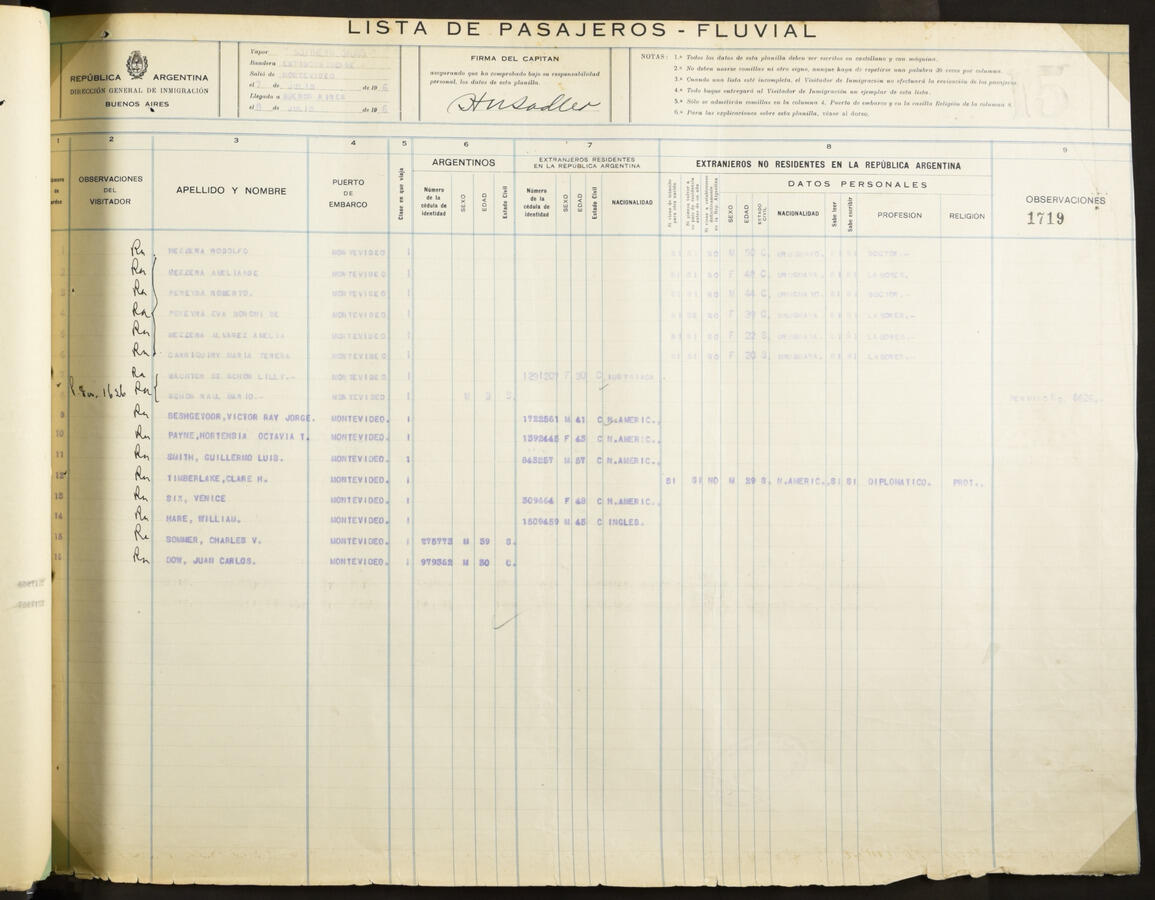 LISTA DE PASAJEROS - FLUVIAL
REPÚBLICA ARGENTINA
DIRECCIÓN GENERAL DE INMIGRACIÓN
BUENOS AIRES
Vapor
Bandera
Salió de MONTEVIDEO
el 7 de JULIO de 19
Llegado a BUENOS AIRES
el 8 de JULIO de 19
FIRMA DEL CAPITAN
asegurando que ha comprobado bajo su responsabilidad
personal, los datos de esta planilla.
NOTAS: 1.ª Todos los datos de esta planilla deben ser escritos en castellano y con máquina.
2.ª No deben usarse comillas ni otro signo, aunque haya de repetirse una palabra 30 veces por columna.
3.ª Cuando una lista esté incompleta, el Visitador de Inmigración no efectuará la revisación de los pasajeros.
4.ª Todo buque entregará al Visitador de Inmigración un ejemplar de esta lista.
5.ª Sólo se admitirán comillas en la columna 4. Puerto de embarco y en la casilla Religión de la columna 8.
6.ª Para las explicaciones sobre esta planilla, véase al dorso.
1 2 3 4 5 6 7 8 9
OBSERVACIONES DEL VISITADOR
APELLIDO Y NOMBRE
PUERTO DE EMBARCO
Clase en que viaja
ARGENTINOS
Número de la cédula de identidad
SEXO
EDAD
Estado Civil
EXTRANJEROS RESIDENTES EN LA REPÚBLICA ARGENTINA
Número de la cédula de identidad
SEXO
EDAD
Estado Civil
NACIONALIDAD
EXTRANJEROS NO RESIDENTES EN LA REPÚBLICA ARGENTINA
DATOS PERSONALES
SEXO
EDAD
ESTADO CIVIL
NACIONALIDAD
Sabe leer
Sabe escribir
PROFESION
RELIGIÓN
OBSERVACIONES
1719
1 Rn MEZZERA RODOLFO MONTEVIDEO 1 SI SI NO M 50 C. URUGUAYO. SI SI DOCTOR.-
2 Rn MONTEVIDEO 1 SI SI NO F C. URUGUAYA. SI SI LABORES.
3 Rn PEREYRA ROBERTO. MONTEVIDEO 1 SI SI NO M 44 C. URUGUAYO. SI SI DOCTOR.-
4 Rn PEREYRA EVA DE MONTEVIDEO 1 SI SI NO F C. URUGUAYA. SI SI LABORES.-
5 Rn MEZZERA ALVAREZ AMELIA MONTEVIDEO 1 SI SI NO F 22 S. URUGUAYA. SI SI LABORES.-
6 Rn CARRIQUIRY MARIA TERESA MONTEVIDEO 1 SI SI NO F 20 S. URUGUAYA. SI SI LABORES.-
7 Rn WACHTER DE SCHON LILLY.- MONTEVIDEO 1 1291207 F 30 C
8 Rn SCHON RAUL MARIO.- MONTEVIDEO 1 M 3 S.
9 Rn BESHGEVOOR,VICTOR RAY JORGE. MONTEVIDEO. 1 1722561 M 41 C N.AMERIC.
10 Rn PAYNE,HORTENSIA OCTAVIA T. MONTEVIDEO. 1 1392445 F 43 C N.AMERIC.
11 Rn SMITH, GUILLERMO LUIS. MONTEVIDEO. 1 843257 M 57 C N.AMERIC.
12 Rn TIMBERLAKE,CLARE H. MONTEVIDEO. 1 SI SI NO M 29 S. N.AMERIC. SI SI DIPLOMATICO. PROT.
13 Rn SIX, VENICE MONTEVIDEO. 1 309464 F 48 C N.AMERIC.
14 Rn HARE, WILLIAM. MONTEVIDEO. 1 1509459 M 45 C INGLES.
15 Rn SOMMER, CHARLES V. MONTEVIDEO. 1 275773 M 39 S.
16 Rn DOW, JUAN CARLOS. MONTEVIDEO. 1 979362 M 30 C.